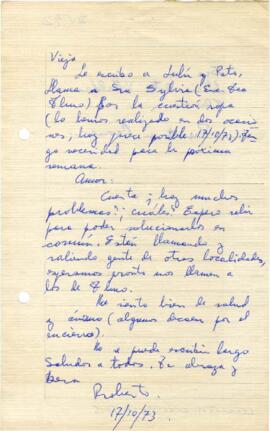 Viejo
Le escribo a Lulú y Pato,
llama a Sra Sylvia (Sra. Leo
Elmo) por la cuestión ropa
(lo hemos realizado en dos ocacio
nes, hoy posible: 17/10/73).
go necesidad para la próxima
semana.
Amor:
Cuenta ¿hay muchos
problemas?; cuales? Espero salir
para poder solucionarlos en
común. Están llamando y
saliendo gente de otras localidades,
esperamos pronto nos llamen a
los de Elmo.
Me siento bien de salud
y ánimo (algunos decaen por el
encierro).
No se puede escribir largo
Saludos a todos. Te abraza y
besa
Roberto.
17/10/73.